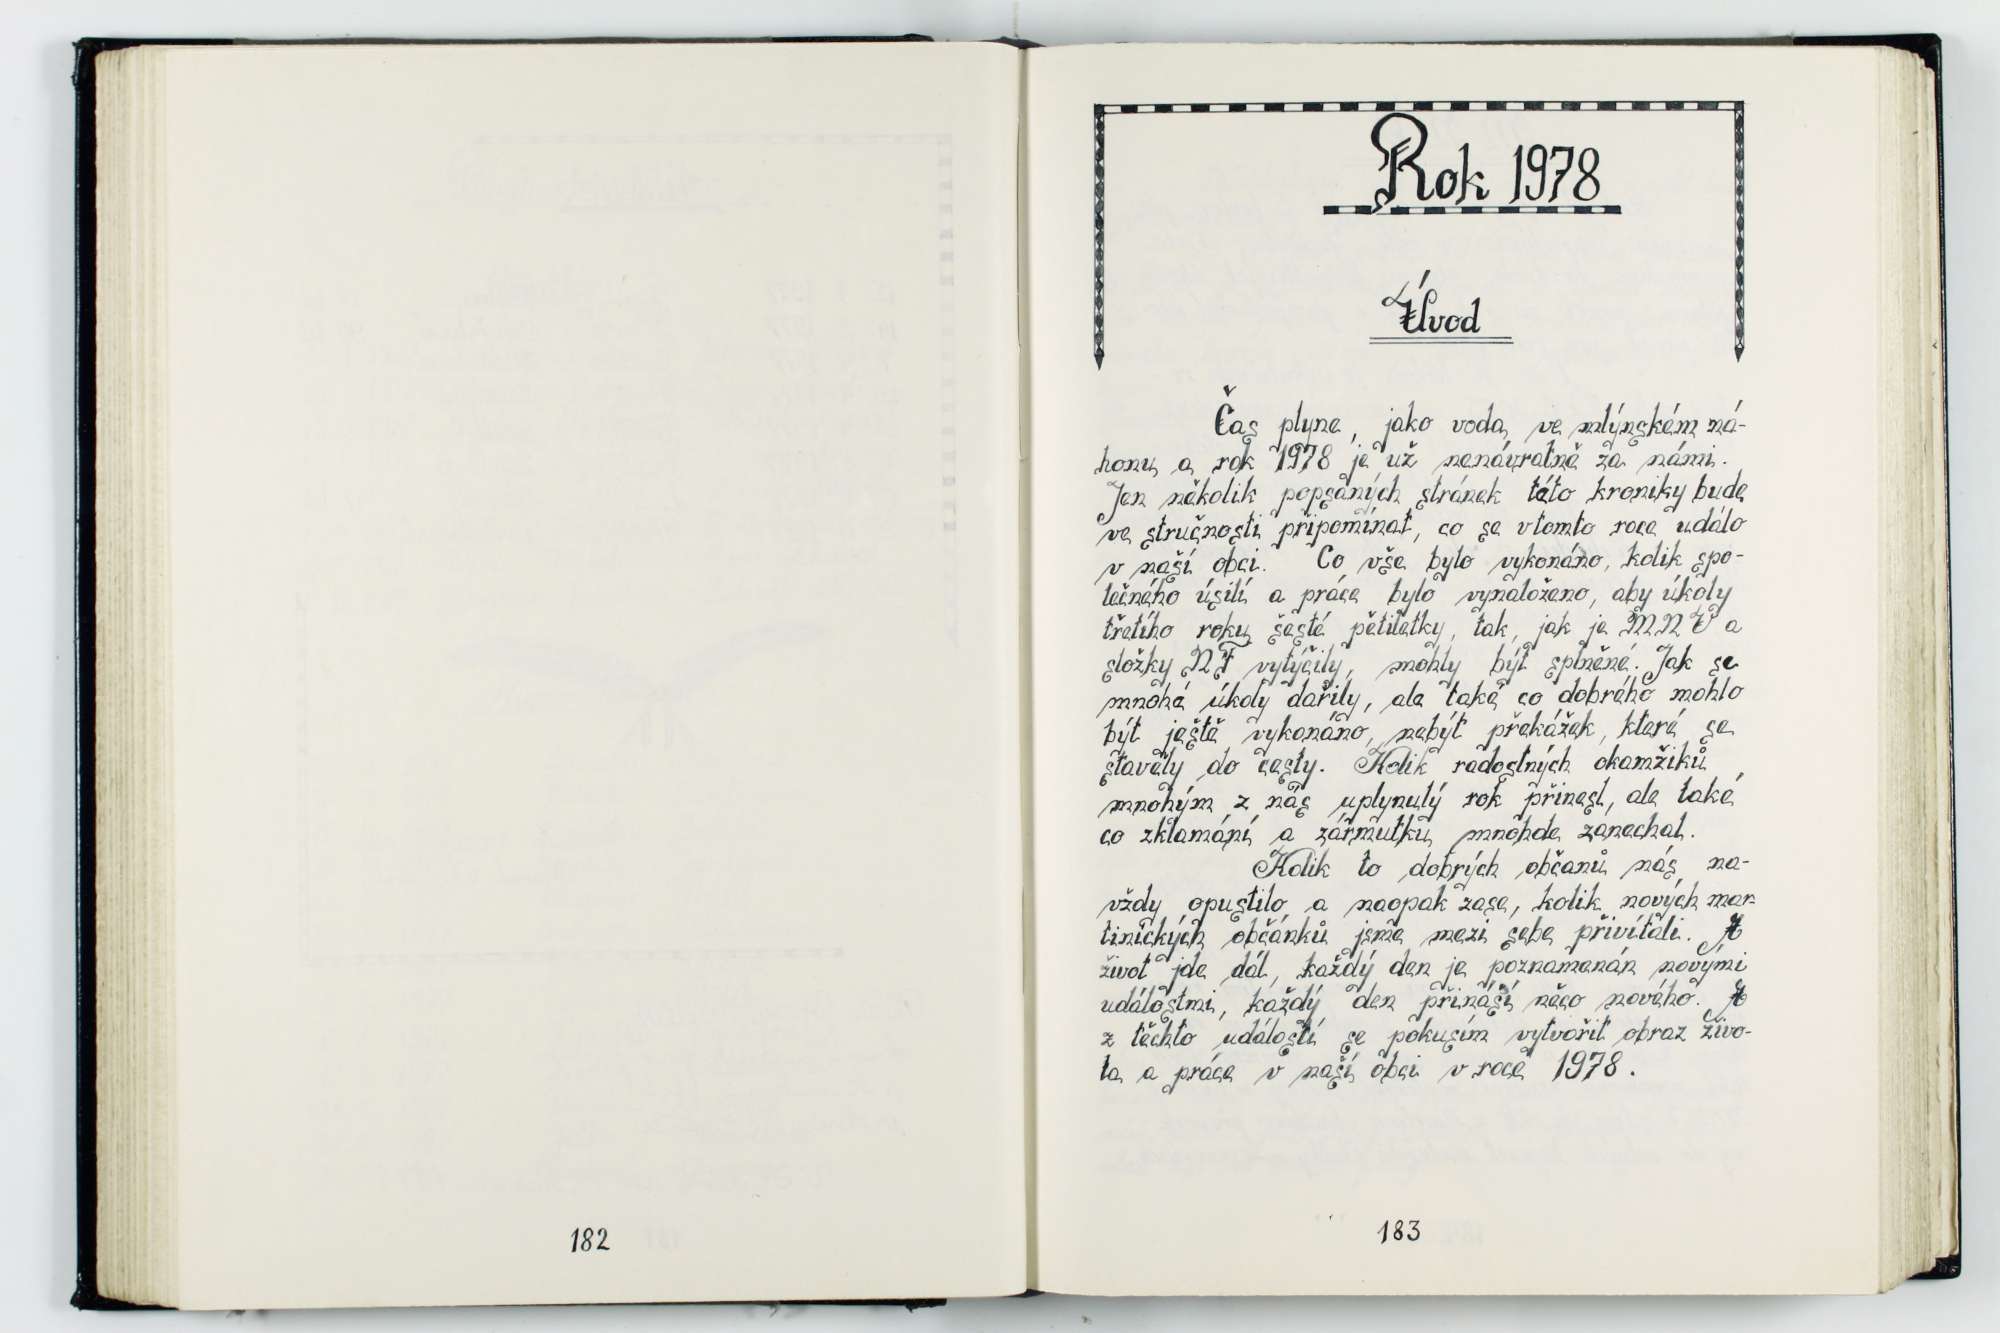 Rok 1978
Úvod
Čas plyne, jako voda, ve mlýnském ná-
honu a rok 1978 je už nenávratně za námi.
Jen několik popsaných stránek této kroniky bude
ve stručnosti připomínat, co se v tomto roce událo
v naší obci. Co vše bylo vykonáno, kolik spo-
lečného úsilí a práce bylo vynaloženo, aby úkoly
třetího roku šesté pětiletky, tak, jak je MNV a
složky NF vytýčily, mohly být splněné. Jak se
mnohé úkoly dařily, ale také co dobrého mohlo
být ještě vykonáno, nebýt překážek, které se
stavěly do cesty. Kolik radostných okamžiků
mnohým z nás uplynulý rok přinesl, ale také
co zklamání a zármutku mnohde zanechal.
Kolik to dobrých občanů nás na-
vždy opustilo a naopak zase, kolik nových mar-
tinických občánků jsme mezi sebe přivítali. A
život jde dál, každý den je poznamenán novými
událostmi, každý den přináší něco nového. A
z těchto událostí se pokusím vytvořit obraz živo-
ta a práce v naší obci v roce 1978.
182
183